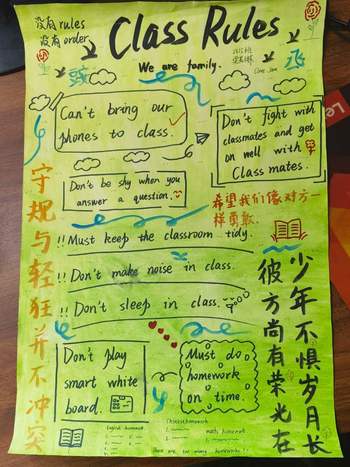 没有rules
没有order
Class Rules
We are family.
Can't bring our
phones to class.
Don't fight with
classmates and get
on well with
Class mates.
Don't be shy when you
answer a question.
希望我们像对方一
样勇敢.
!!Must keep the classroom tidy.
!! Don't make noise in class.
!! Don't sleep in class.
守规与轻狂并不冲突
少年不惧岁月长
彼方尚有荣光在
Don't play
smart white
board.
Must do
homework
on time.
English homework
Chinese homework
math homework